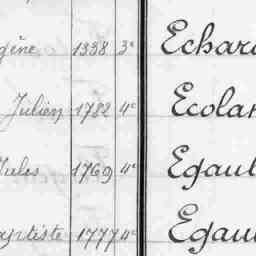 gène 1338 3e Echar
Julien 1782 4e Ecolar
Jules 1769 4e Egaul
aptiste 1777 4e Egau